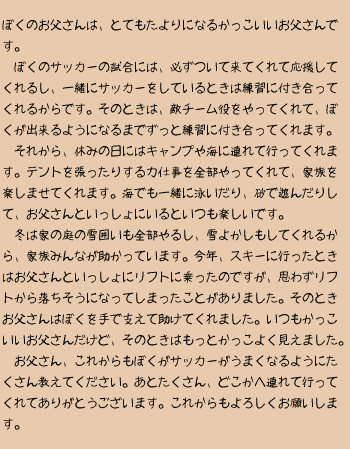 ぼくのお父さんは、とてもたよりになるかっこいいお父さんで
す。
　ぼくのサッカーの試合には、必ずついて来てくれて応援して
くれるし、一緒にサッカーをしているときは練習に付き合って
くれるからです。そのときは、敵チーム役をやってくれて、ぼ
くが出来るようになるまでずっと練習に付き合ってくれます。
　それから、休みの日にはキャンプや海に連れて行ってくれま
す。テントを張ったりする力仕事を全部やってくれて、家族を
楽しませてくれます。海でも一緒に泳いだり、砂で遊んだりし
て、お父さんといっしょにいるといつも楽しいです。
　冬は家の庭の雪囲いも全部やるし、雪よかしもしてくれるか
ら、家族みんなが助かっています。今年、スキーに行ったとき
はお父さんといっしょにリフトに乗ったのですが、思わずリフ
トから落ちそうになってしまったことがありました。そのとき
お父さんはぼくを手で支えて助けてくれました。いつもかっこ
いいお父さんだけど、そのときはもっとかっこよく見えました。
　お父さん、これからもぼくがサッカーがうまくなるようにた
くさん教えてください。あとたくさん、どこかへ連れて行って
くれてありがとうございます。これからもよろしくお願いしま
す。